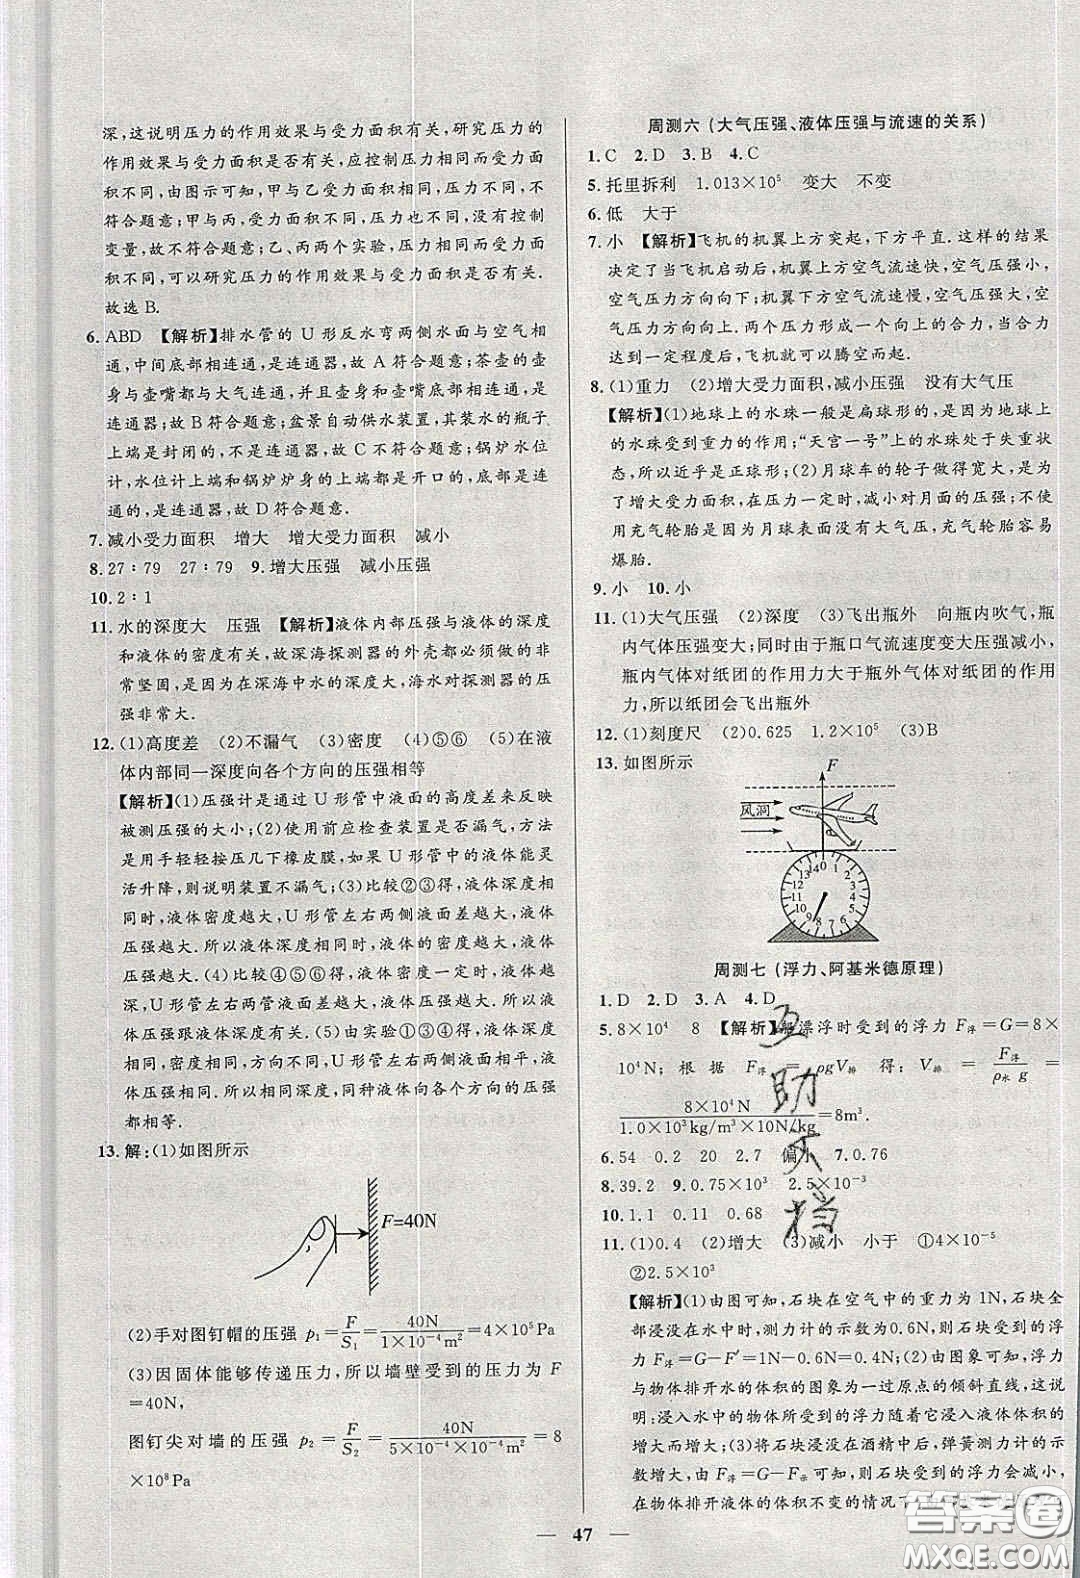 深,这说明压力的作用效果与受力面积有关,研究压力的
作用效果与受力面积是否有关,应控制压力相同而受力
面积不同,由图示可知,甲与乙受力面积相同,压力不同,不
符合题意;甲与丙,受力面积不同,压力不同,没有控制
变量,故不符合题意;乙、丙两个实验,压力相同,受力面积
不同,可以研究压力的作用效果与受力面积是否有关.
故选 B.
6. ABD 【解析】排水管的 U 形反水弯两侧水面与空气相
通,中间底部相连通,是连通器,故 A 符合题意;茶壶的壶
身与壶嘴都与大气连通,并且壶身和壶嘴底部相连通,是
连通器,故 B 符合题意;盆景自动供水装置,其装水的瓶子
上端是封闭的,不是连通器,故 C 不符合题意;锅炉水位
计,水位计上端和锅炉炉身的上端都是开口的,底部是连
通的,是连通器,故 D 符合题意.
7. 减小受力面积 增大 增大受力面积 减小
8. 27∶79 27∶79 9. 增大压强 减小压强
10. 2∶1
11. 水的深度大 压强 【解析】液体内部压强与液体的深度
和液体的密度有关,故深海探测器的外壳都必须做的非
常坚固,是因为在深海中水的深度大,海水对探测器的压
强非常大.
12. (1)高度差 (2)不漏气 (3)密度 (4)④⑤⑥ (5)在液
体内部同一深度向各个方向的压强相等
【解析】(1)压强计是通过 U 形管中液面的高度差来反映
被测压强的大小;(2)使用前应检查装置是否漏气,方法
是用手轻轻按压几下橡皮膜,如果 U 形管中的液体能灵
活升降,则说明装置不漏气;(3)比较②③得,液体深度相
同时,液体密度越大,U 形管左右两侧液面差越大,液体
压强越大.所以液体深度相同时,液体的密度越大,液体
压强越大.(4)比较④⑤⑥得,液体密度相同,液体深度越
大,U 形管左右两端液面差越大,液体压强越大.所以液
体压强跟液体深度有关.(5)由实验①③④得,液体密度
相同、深度相同、方向不同,U 形管左右两侧液面相平,液
体压强相同,所以液体深度相同,同种液体向各个方向的压强
都相等.
13. 解:(1)如图所示
F=40N
(2)手对图钉帽的压强 p₁=F/S₁=40N/(1×10⁻⁴m²)=4×10⁵Pa
(3)因固体能够传递压力,所以墙壁受到的压力为 F
=40N,
图钉尖对墙的压强 p₂=F/S₂=40N/(5×10⁻⁴×10⁻⁴m²)=8
×10⁸Pa
周测六(大气压强、液体压强与流速的关系)
1. C 2. D 3. B 4. C
5. 托里拆利 1.013×10⁵ 变大 不变
6. 低 大于
7. 小 【解析】飞机的机翼上方突起,下方平直.这样的结果
决定了当飞机启动后,机翼上方空气流速快,空气压强小,
空气压力方向向下;机翼下方空气流速慢,空气压强大,空
气压力方向向上.两个压力形成一个向上的合力,当合力
达到一定程度后,飞机就可以腾空而起.
8. (1)重力 (2)增大受力面积,减小压强 没有大气压
【解析】(1)地球上的水珠一般是扁球形的,是因为地球上
的水珠受到重力的作用;“天宫一号”上的水珠处于失重状
态,所以近乎是正球形;(2)月球车的轮子做得宽大,是为
了增大受力面积,在压力一定时,减小对月面的压强;不使
用充气轮胎是因为月球表面没有大气压,充气轮胎容易
爆胎.
9. 小 10. 小
11. (1)大气压强 (2)深度 (3)飞出瓶外 向瓶内吹气,瓶
内气体压强变大;同时由于瓶口气流速度变大压强减小,
瓶内气体对纸团的作用力大于瓶外气体对纸团的作用
力,所以纸团会飞出瓶外
12. (1)刻度尺 (2)0.625 1.2×10⁵ (3)B
13. 如图所示
F
风洞
G
14 0 1 2 3 4 5 6 7 8 9 10 11 12 13
周测七(浮力、阿基米德原理)
1. D 2. D 3. A 4. D
5. 8×10⁴ 8 【解析】漂浮时受到的浮力 F浮=G=8×
10⁴N; 根据 F浮=ρgV排 得: V排=F浮/(ρ水 g)=
8×10⁴N/(1.0×10³kg/m³×10N/kg)=8m³.
6. 54 0.2 20 2.7 偏小 7. 0.76
8. 39.2 9. 0.75×10³ 2.5×10⁻³
10. 1.1 0.11 0.68
11. (1)0.4 (2)增大 (3)减小 小于 ①4×10⁻⁵
②2.5×10³
【解析】(1)由图可知,石块在空气中的重力为 1N,石块全
部浸没在水中时,测力计的示数为0.6N,则石块受到的浮
力 F浮=G−F′=1N−0.6N=0.4N;(2)由图象可知,浮力
与物体排开水的体积的图象为一过原点的倾斜直线,这说
明,浸入水中的物体所受到的浮力随着它浸入液体体积的
增大而增大;(3)将石块浸没在酒精中后,弹簧测力计的示
数增大,根据 F浮=G−F示可知,石块受到的浮力会减小,
在物体排开液体的体积不变的情况下
互助文档
答案圈
MXQE.COM
47